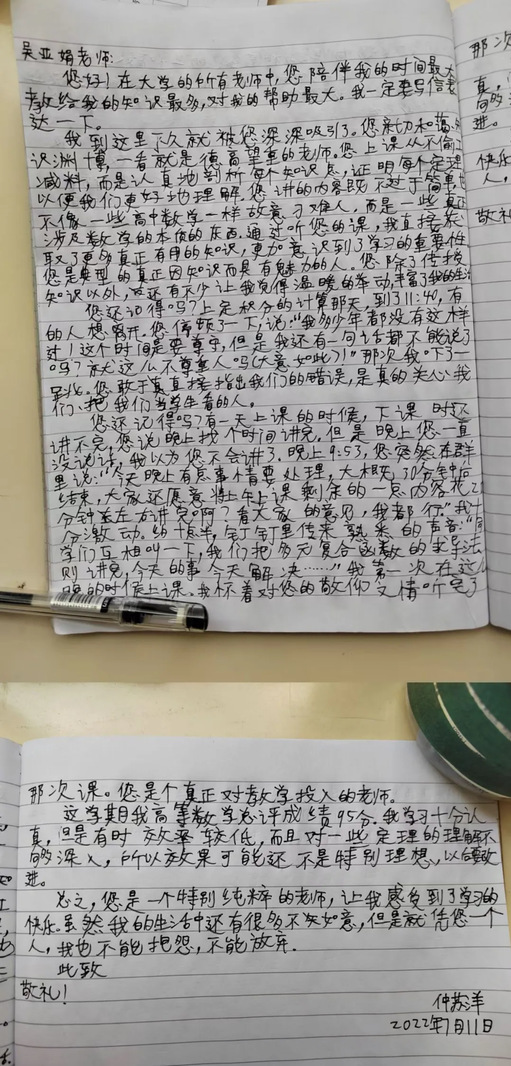 吴亚娟老师:
您好!在大学的所有老师中,您陪伴我的时间最大
教给我的知识最多,对我的帮助最大。我一定要写信表
达一下。
我到这里不久就被您深深吸引了。您亲切和蔼,
识渊博,一看就是德高望重的老师。您上课从不偷工
减料,而是认真地剖析每个知识点,证明每个定理
以便我们更好地理解。您讲的内容既不过于简单也
不像一些高中数学一样故意刁难人,而是一些真正
涉及数学的本质的东西。通过听您的课,我直接获
取了更多真正有用的知识,更加意识到了学习的重要性
您是典型的真正因知识而具有魅力的人。您除了传授
知识以外,还有不少让我觉得温暖的举动,丰富了我的生活
您还记得吗?上定积分的计算那天,到了11:40,有
的人想离开。您停顿了一下,说:“我多少年都没有这样
过!这个时间是要尊守,但是我还有一句话都不能说了
吗?就这么不尊重人吗(大意如此)!”那次我
您敢于直接指出我们的错误,是真的关心我
们、把我们当学生看的人。
您还记得吗?有一天上课的时候,下课时还
讲不完,您说晚上找个时间讲完。但是晚上您一直
没说话,我以为您不会讲了。晚上9:53,您突然在群
里说:“今天晚上有急事情要处理,大概30分钟后
结束,大家还愿意将上午上课剩余的一点内容花2
分钟左右讲完啊?看大家的意见,我都行。”我十
分激动。约十点半,钉钉里传来熟悉的声音:“同
学们互相叫一下,我们把多元复合函数的求导法
则讲完,今天的事今天解决……”我第一次在这么
晚的时候上课。我怀着对您的敬仰之情听完了
那次课。您是个真正对教学投入的老师。
这学期我高等数学总评成绩95分。我学习十分认
真,但是有时效率较低,而且对一些定理的理解不
够深入,所以效果可能还不是特别理想,以后要改
进。
总之,您是一个特别纯粹的老师,让我感受到了学习的
快乐。虽然我的生活中还有很多不尽如意,但是就凭您一个
人,我也不能抱怨,不能放弃.
此致
敬礼!
仲苏洋
2022年7月11日